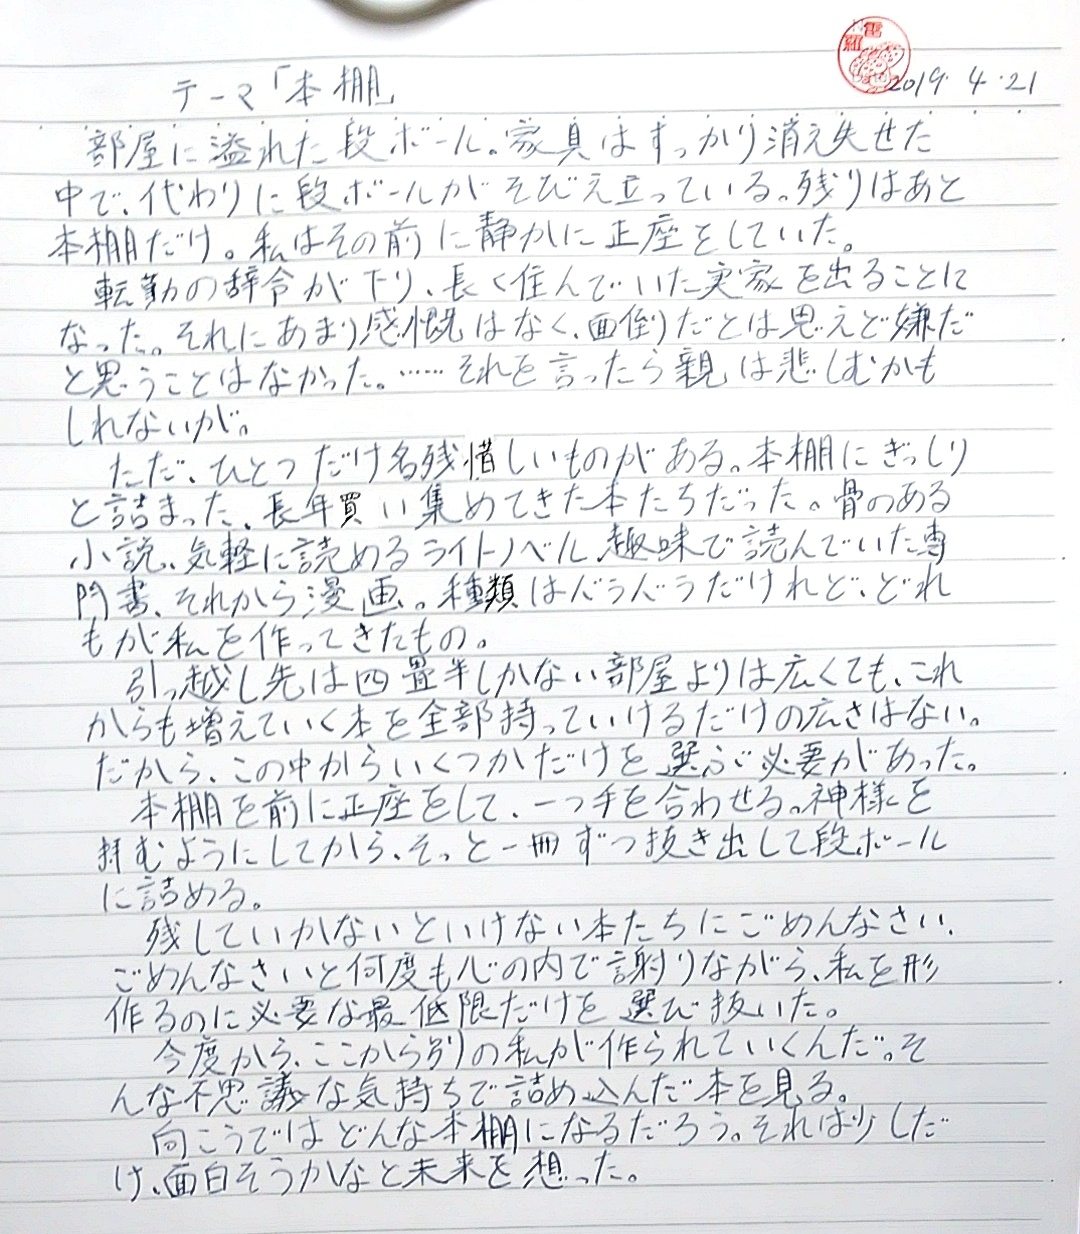 雷羅
2019.4.21
テーマ「本棚」
部屋に溢れた段ボール。家具はすっかり消え失せた
中で、代わりに段ボールがそびえ立っている。残りはあと
本棚だけ。私はその前に静かに正座をしていた。
転勤の辞令が下り、長く住んでいた実家を出ることに
なった。それにあまり感慨はなく、面倒だとは思えど嫌だ
と思うことはなかった。……それを言ったら親は悲しむかも
しれないが。
ただ、ひとつだけ名残惜しいものがある。本棚にぎっしり
と詰まった、長年買い集めてきた本たちだった。骨のある
小説、気軽に読めるライトノベル、趣味で読んでいた専
門書、それから漫画。種類はばらばらだけれど、どれ
もが私を作ってきたもの。
引っ越し先は四畳半しかない部屋よりは広くても、これ
からも増えていく本を全部持っていけるだけの広さはない。
だから、この中からいくつかだけを選ぶ必要があった。
本棚を前に正座をして、一つ手を合わせる。神様を
拝むようにしてから、そっと一冊ずつ抜き出して段ボール
に詰める。
残していかないといけない本たちにごめんなさい、
ごめんなさいと何度も心の内で謝りながら、私を形
作るのに必要な最低限だけを選び抜いた。
今度から、ここから別の私が作られていくんだ。そ
んな不思議な気持ちで詰め込んだ本を見る。
向こうではどんな本棚になるだろう。それは少しだ
け、面白そうかなと未来を想った。